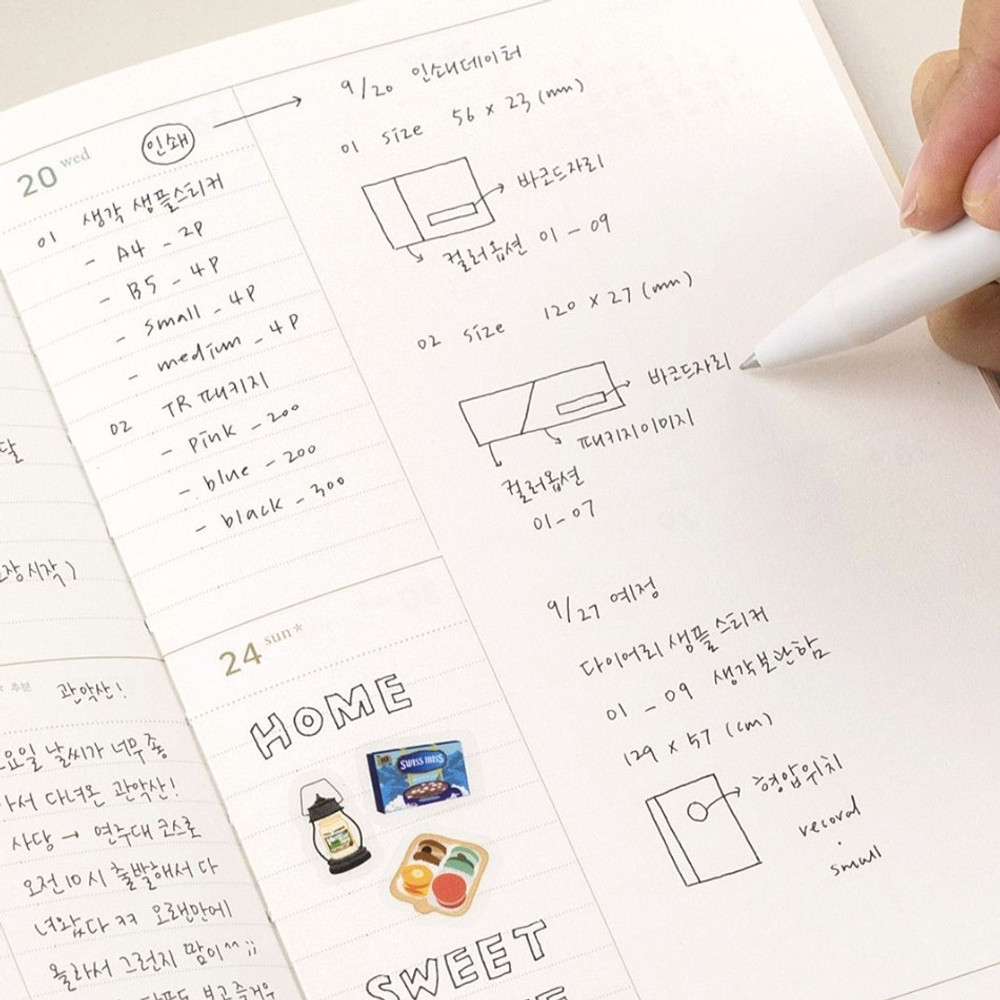 20 wed
인쇄
01 생각 샘플스티커
- A4 - 2P
- B5 - 4P
- small - 4P
- medium - 4P
02 TR 패키지
- pink - 200
- blue - 200
- black - 300
9/20 인쇄데이터
01 size 56 x 23 (mm)
바코드자리
컬러옵션 01 - 09
02 size 120 x 27 (mm)
바코드자리
패키지이미지
컬러옵션
01 - 07
9/27 예정
다이어리 샘플 스티커
01 - 09 생각보관함
129 x 57 (cm)
형압위치
record
small
24 sun*
HOME
SWISS MISS
SWEET
달
시작)
추분
관악산!
요일 날씨가 너무 좋
아서 다녀온 관악산!
사당 → 연주대 코스로
오전 10시 출발해서 다
녀왔다 ㅋㅋ 오랜만에
올라서 그런지 땀이^^;;
보고 즐거우